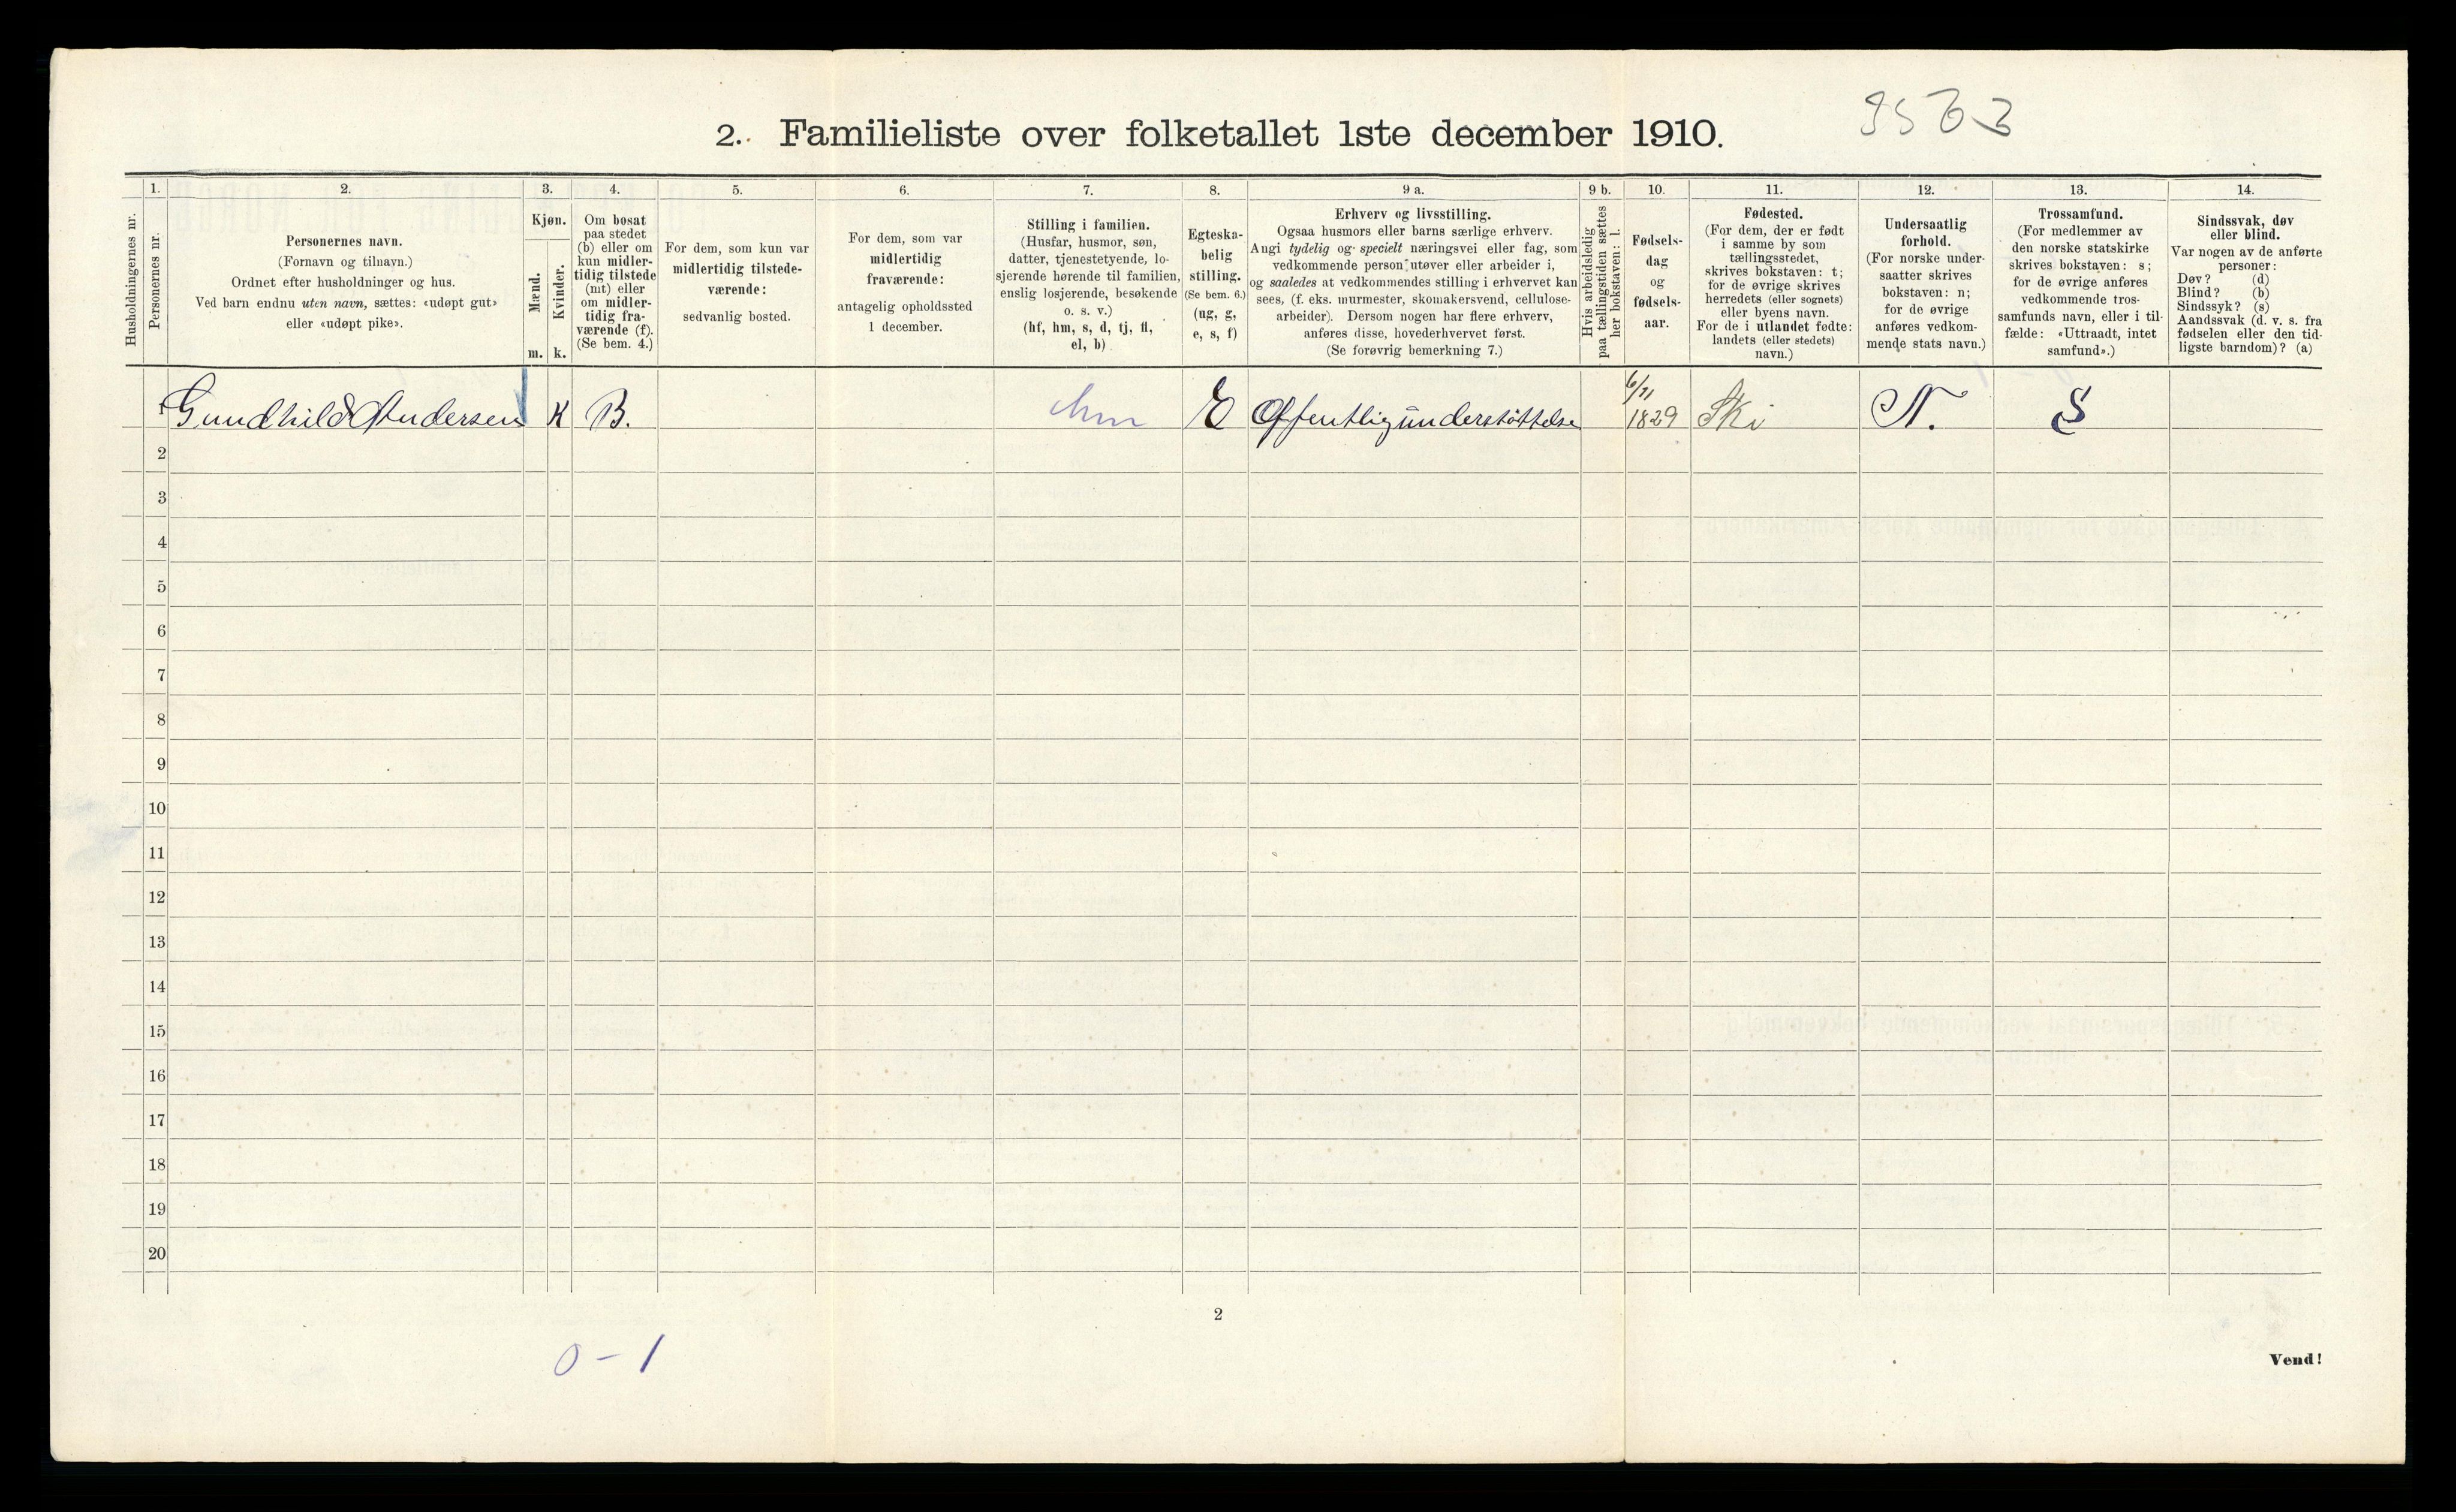 9563
2. Familieliste over folketallet 1ste december 1910.
Husholdningernes nr.
1.
Personernes nr.
2.
Personernes navn.
(Fornavn og tilnavn.)
Ordnet efter husholdninger og hus.
Ved barn endnu uten navn, sættes: «udøpt gut»
eller «udøpt pike».
3.
Kjøn.
Mænd.
Kvinder.
m. k.
4.
Om bosat
paa stedet
(b) eller om
kun midler-
tidig tilstede
(mt) eller
om midler-
tidig fra-
værende (f).
(Se bem. 4.)
5.
For dem, som kun var
midlertidig tilstede-
værende:
sedvanlig bosted.
6.
For dem, som var
midlertidig
fraværende:
antagelig opholdssted
1 december.
7.
Stilling i familien.
(Husfar, husmor, søn,
datter, tjenestetyende, lo-
sjerende hørende til familien,
enslig losjerende, besøkende
o. s. v.)
(hf, hm, s, d, tj, fl,
el, b)
8.
Egteska-
belig
stilling.
(Se bem. 6.)
(ug, g,
e, s, f)
9 a.
Erhverv og livsstilling.
Ogsaa husmors eller barns særlige erhverv.
Angi tydelig og specielt næringsvei eller fag, som
vedkommende person utøver eller arbeider i,
og saaledes at vedkommendes stilling i erhvervet kan
sees, (f. eks. murmester, skomakersvend, cellulose-
arbeider). Dersom nogen har flere erhverv,
anføres disse, hovederhvervet først.
(Se forøvrig bemerkning 7.)
9 b.
Hvis arbeidsledig
paa tællingstiden sættes
her bokstaven: l.
10.
Fødsels-
dag
og
fødsels-
aar.
11.
Fødested.
(For dem, der er født
i samme by som
tællingsstedet,
skrives bokstaven: t;
for de øvrige skrives
herredets (eller sognets)
eller byens navn.
For de i utlandet fødte:
landets (eller stedets)
navn.)
12.
Undersaatlig
forhold.
(For norske under-
saatter skrives
bokstaven: n;
for de øvrige
anføres vedkom-
mende stats navn.)
13.
Trossamfund.
(For medlemmer av
den norske statskirke
skrives bokstaven: s;
for de øvrige anføres
vedkommende tros-
samfunds navn, eller i til-
fælde: «Uttraadt, intet
samfund».)
14.
Sindssvak, døv
eller blind.
Var nogen av de anførte
personer:
Døv? (d)
Blind? (b)
Sindssyk? (s)
Aandssvak (d. v. s. fra
fødselen eller den tid-
ligste barndom)? (a)
1 Gundhild Andersen K B. hm E Offentlig understøttelse 6/11 1829 Ski N. S
2
3
4
5
6
7
8
9
10
11
12
13
14
15
16
17
18
19
20
2
0-1
Vend!